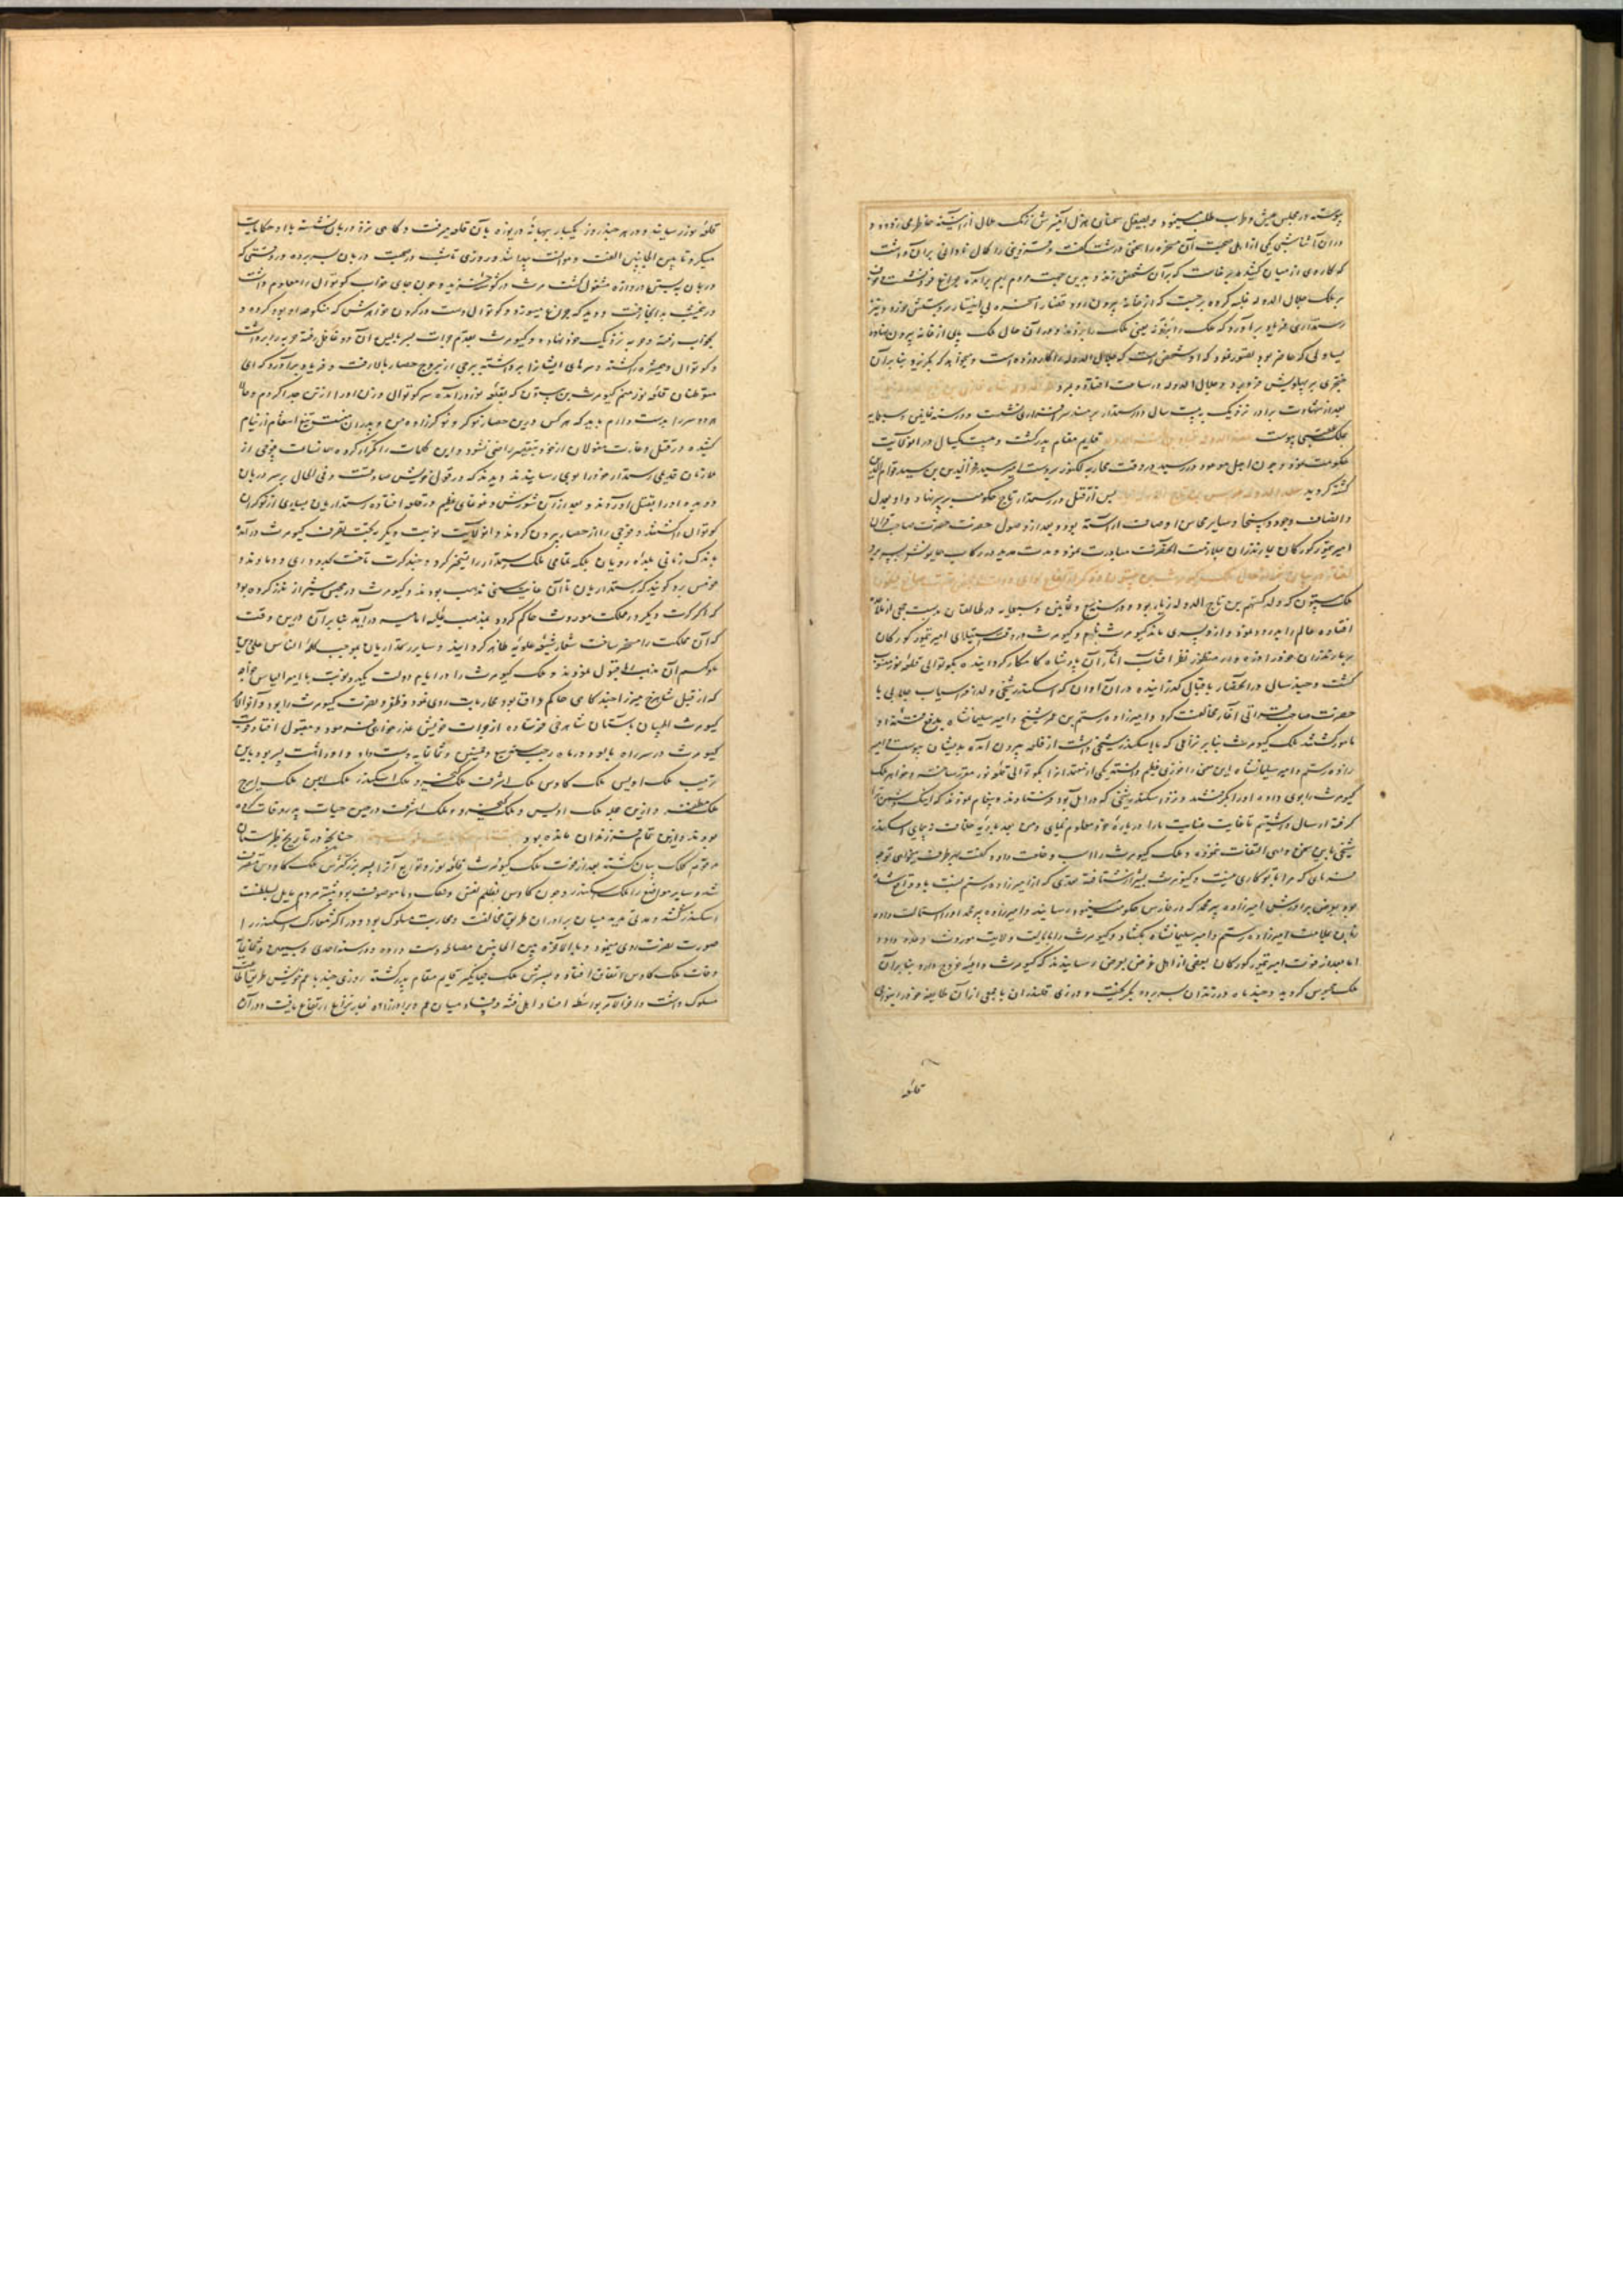 پیوسته در مجلس عیش و طرب طلب مینمود و بصیقل سخنان هزل آمیزش زنک ملال از آیینه خاطر می زدود و
در آن اثنا شبی یکی از اهل صحبت آن مسخره را سخنی درشت گفت و قزوینی را کمال نادانی بر آن داشت
که کاردی از میان کشید بر خاست که بر آن شخص زند و بدین جهت مردم بهم برآمده چراغ فرو نشست و خوف
بر ملک جلال الدوله غلبه کرده برجست که از خانه بیرون رود قضا را مسخره بی اختیار بر دستش خورد و نیز
رستمداری فریاد برآورد که ملک را یعنی ملک را بزدند و در آن حال ملک پای از خانه بیرون نهاده
یساولی که حاضر بود تصور نمود که او شخصی است که جلال الدوله را کارد زده است و میخواهد که بگریزد بنابر آن
خنجری بر پهلویش فرو برد و جلال الدوله در ساعت افتاده و بمرد
بعد از شهادت برادر نزدیک بیست سال در رستمدار بر مسند سرافرازی نشست و در سنه ثمانین و سبعمایه
بملک عقبی پیوست قایم مقام پدر گشت و مدت یکسال در آن ولایت
حکومت نمود و چون اجل موعود در رسید در وقت محاربه لکتور بر دست سید فخر الدین بن سید قوام الدین
کشته گردید پس از قتل در رستمدار تاج حکومت بر سر نهاد و او بعدل
و انصاف و جود و سخا و سایر محاسن اوصاف آراسته بود و بعد از وصول حضرت صاحب قران
امیر تیمور کورکان بمازندران بملازمت آنحضرت مبادرت نمود و مدت مدید در رکاب همایونش بسر برد
ملک بیستون که ولد کستهم بن تاج الدوله زیار بود و در سنه سبع و ثمانین و سبعمایه در طالقان بدست جمعی از ملاحده
افتاده عالم را بدرود نمود و از او پسری ماند کیومرث نام و کیومرث در وقت استیلای امیر تیمور کورکان
بر مازندران خود را در منظور نظر آفتاب اثر آن پادشاه کامکار گردانیده بکوتوالی قلعه نور منصوب
گشت و چند سال در آنحصار باقبال گذرانیده در آن اوان که اسکندر شیخی ولد افراسیاب چلابی با
حضرت صاحب قرانی آغاز مخالفت کرد و امیرزاده رستم بن عمر شیخ و امیر سلیمانشاه بدفع فتنه او
مامور گشتند ملک کیومرث بنابر نزاعی که با اسکندر شیخی داشت از قلعه بیرون آمده بدیشان پیوست امیر
زاده رستم و امیر سلیمانشاه این معنی را فوزی عظیم دانسته یکی از معتمدان را بکوتوالی قلعه نور مقرر ساختند و خواهر ملک
کیومرث را بوی داده او را بگرفتند و نزد اسکندر شیخی که در آمل بود فرستادند و پیغام نمودند که اینک دشمن ترا
گرفته ارسال داشتیم تا غایت عنایت ما را درباره خود معلوم نمای و من بعد بجای اسکندر
شیخی باین سخن وهمی التفات ننموده و ملک کیومرث را اسب و خلعت داد و گفت بهر طرف میخواهی توجه
فرمای که مرا با تو کاری نیست و کیومرث بشیراز شتافته مدتی که از امیرزاده رستم
خود بعرض برادرش امیرزاده پیر محمد که در فارس حکومت مینمود رسانید و امیرزاده پیر محمد او را استمالت داده
اما بعد از فوت امیر تیمور کورکان بعضی از اهل غرض بعرض رسانیدند که کیومرث داعیه خروج دارد بنابر آن
ملک محبوس گردید و چند ماه در زندان بسر برده بگریخت و در زی قلندران با جمعی از آن طایفه خود را بنواحی
قلعه
قلعه نور رسانید و در هر چند روز یکبار ببهانه دریوزه بان قلعه میرفت و گاهی نزد دربان نشسته با او حکایات
میکرد تا بین الجانبین الفت و موانست پیدا شد و روزی تا شب در صحبت دربان بسر برده در وقتی که
دربان به بستن دروازه مشغول گشت کیومرث در گوشه خزید و چون جای خواب کوتوال را معلوم داشت
در نیمشب بدانجا رفت و دید که چراغ میسوزد و کوتوال دست در گردن خواهرش که منکوحه او بود کرده و
بخواب رفته و حربه نزدیک خود نهاده و کیومرث بقدم جرات بسر بالین آن دو غافل رفته حربه را برداشت
و کوتوال و همشیره را کشته و سرهای ایشان را برداشته ببرجی از بروج حصار بالا رفت و فریاد برآورد که ای
متوطنان قلعه نور منم کیومرث بن بیستون که بقلعه نور درآمده سر کوتوال و زن او را از تن جدا کردم و حالا
هر دو سر را بدست دارم باید که هر کس درین حصار نوکر و نوکرزاده من و پدران منست تیغ انتقام از نیام
کشیده در قتل و غارت مغولان از خود بتقصیر راضی نشود و این کلمات را تکرار کرده همان ساعت فوجی از
ملازمان قدیمی رستمدار خود را بوی رسانیدند و دیدند که در قول خویش صادقست و فی الحال بر سر دربان
دویده او را بقتل آوردند و بعد از آن شورش و غوغای عظیم در قلعه افتاده رستمداریان بسیاری از نوکران
کوتوال را کشتند و فوجی را از حصار بیرون کردند و آن ولایت نوبت دیگر به تحت تصرف کیومرث درآمد
باندک زمانی بلده رویان بلکه تمامی ملک رستمدار را تسخیر کرد و چند کرت تاخت بحدود ری و دماوند و
قومس برد گویند که رستمداریان تا آن غایت سنی مذهب بودند و کیومرث در حبس شیراز نذر کرده بود
که اگر کرت دیگر در مملکت موروث حاکم گردد بمذهب علیه امامیه درآید بنابر آن درین وقت
که آن مملکت را مسخر ساخت شعار شیعه علویه ظاهر گردانید و سایر رستمداریان بموجب کلمه الناس علی دین
ملوکهم آن مذهب را قبول نمودند و ملک کیومرث را در ایام دولت یکدو نوبت با امیر الیاس خواجه
که از قبل شاهرخ میرزا چند گاهی حاکم عراق بود محاربات روی نمود و ظفر و نصرت کیومرث را بود و آخر الامر
کیومرث ایلچیان باستان شاهرخی فرستاده از جرات خویش عذر خواهی فرمود و مقبول افتاد و فوت
کیومرث در سر راه بابود در ماه رجب سنه سبع و خمسین و ثمانمایه دست داد و او را هشت پسر بود باین
ترتیب ملک اویس ملک کاوس ملک اشرف ملک کیخسرو ملک اسکندر ملک بهمن ملک ایرج
ملک مظفر و از این جمله ملک اویس و ملک کیخسرو و ملک اشرف در حین حیات پدر وفات یافته
بودند و از این تمام فرزندان مانده بود چنانچه در تاریخ طبرستان
مرقوم کلک بیان گشته بعد از فوت ملک کیومرث قلعه نور و توابع آنرا پسر بزرگترش ملک کاوس متصرف
شد و سایر مواضع را ملک اسکندر و چون کاوس بظلم نفس و فتک دما موصوف بود بیشتر مردم مایل بسلطنت
اسکندر گشتند و مدتی مدید میان برادران طریق مخالفت و محاربت مسلوک بود و در اکثر معارک اسکندر را
صورت نصرت روی مینمود و بالاخره بین الجانبین مصالحه دست داده و در سنه احدی و سبعین و ثمانمایه
وفات ملک کاوس اتفاق افتاد و پسرش ملک جهانگیر قایم مقام پدر گشته روزی چند با عم خویش طریق اطاعت
مسلوک داشت و آخر الامر بواسطه افساد اهل فتنه و فساد میان عم و برادرزاده غبار نزاع ارتفاع یافت و در آن